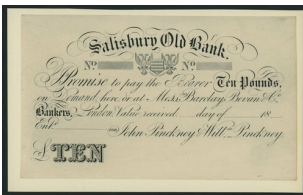 Salisbury Old Bank.
No No
I Promise to pay the Bearer Ten Pounds,
on Demand, here or at Messrs Barclay, Bevan & Co.
Bankers, London, Value received day of 18
Entd. John Pinckney & Willm. Pinckney.
£ TEN